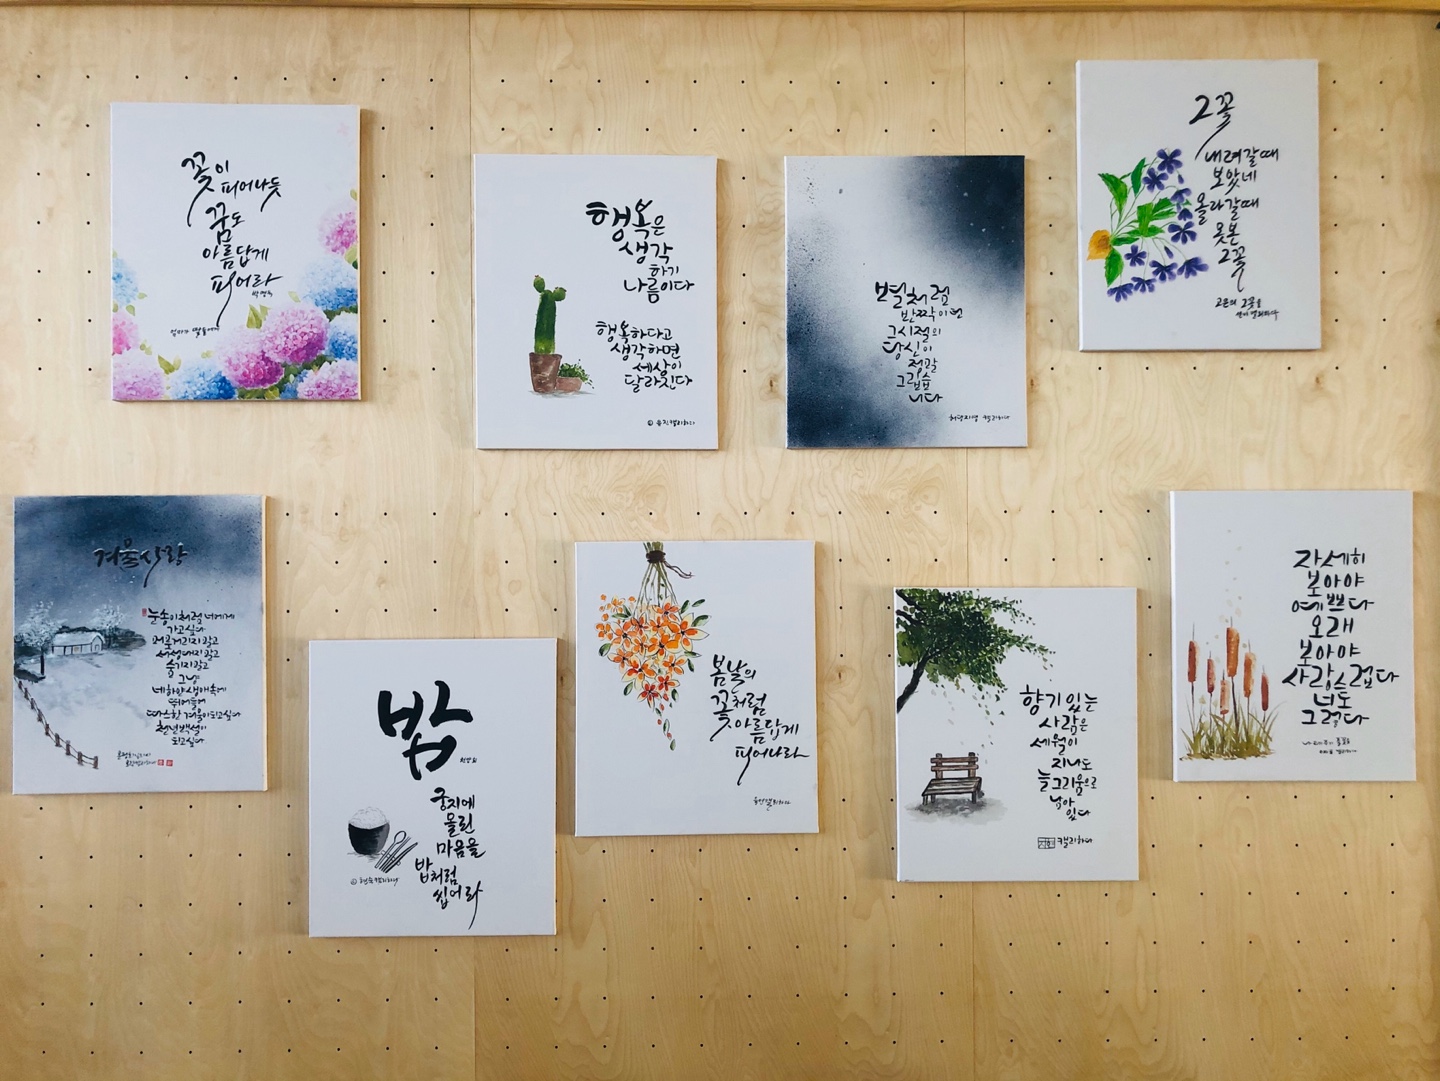 꽃이
피어나듯
꿈도
아름답게
피어라
행복은
생각
하기
나름이다
행복하다고
생각하면
세상이
달라진다
별처럼
반짝이던
그시절의
당신이
정말
그립습
니다
그꽃
내려갈때
보았네
올라갈때
못본
그꽃
고은의 그꽃을
겨울사랑
눈송이처럼 너에게
가고싶다
머뭇거리지 않고
서성대지 않고
숨기지 않고
그냥
네 하얀 생애 속에
뛰어들어
따스한 겨울이 되고 싶다
천년 백설이
되고 싶다
밥
궁지에
몰린
마음을
밥처럼
씹어라
봄날의
꽃처럼
아름답게
피어나라
향기있는
사람은
세월이
지나도
늘그리움으로
남아
있다
캘리하다
자세히
보아야
예쁘다
오래
보아야
사랑스럽다
너도
그렇다